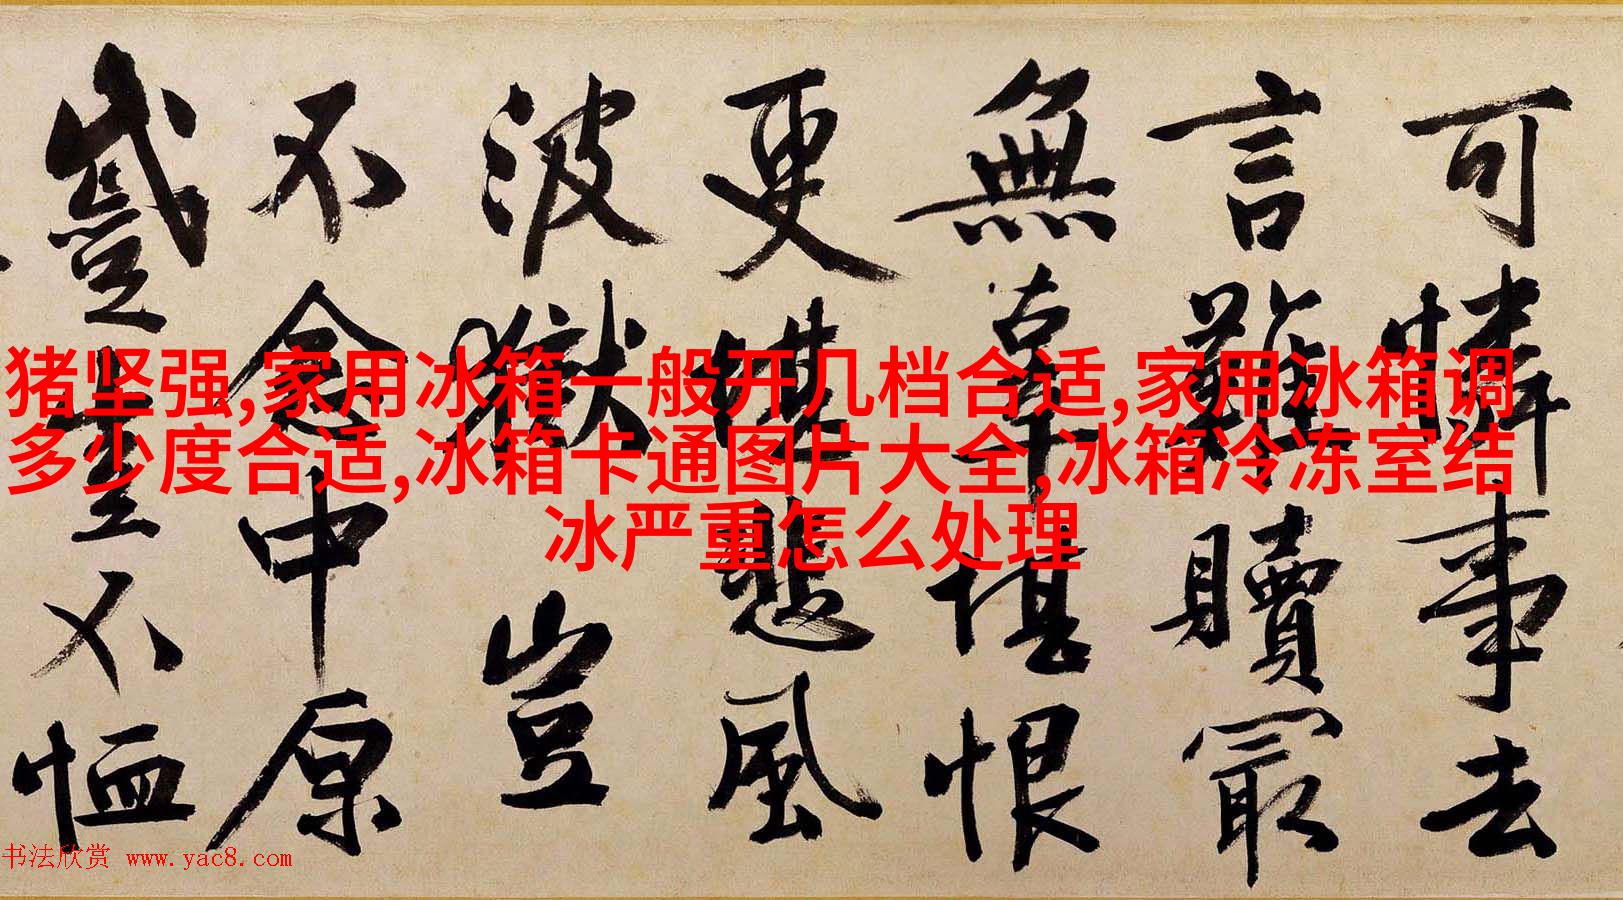 可憐事去
言難贖冣
無辜堪恨
更堪悲風
波獄豈
不念中原
蹙豈不恤
猪坚强,家用冰箱一般开几档合适,家用冰箱调
多少度合适,冰箱卡通图片大全,冰箱冷冻室结
冰严重怎么处理
书法欣赏 www.yac8.com